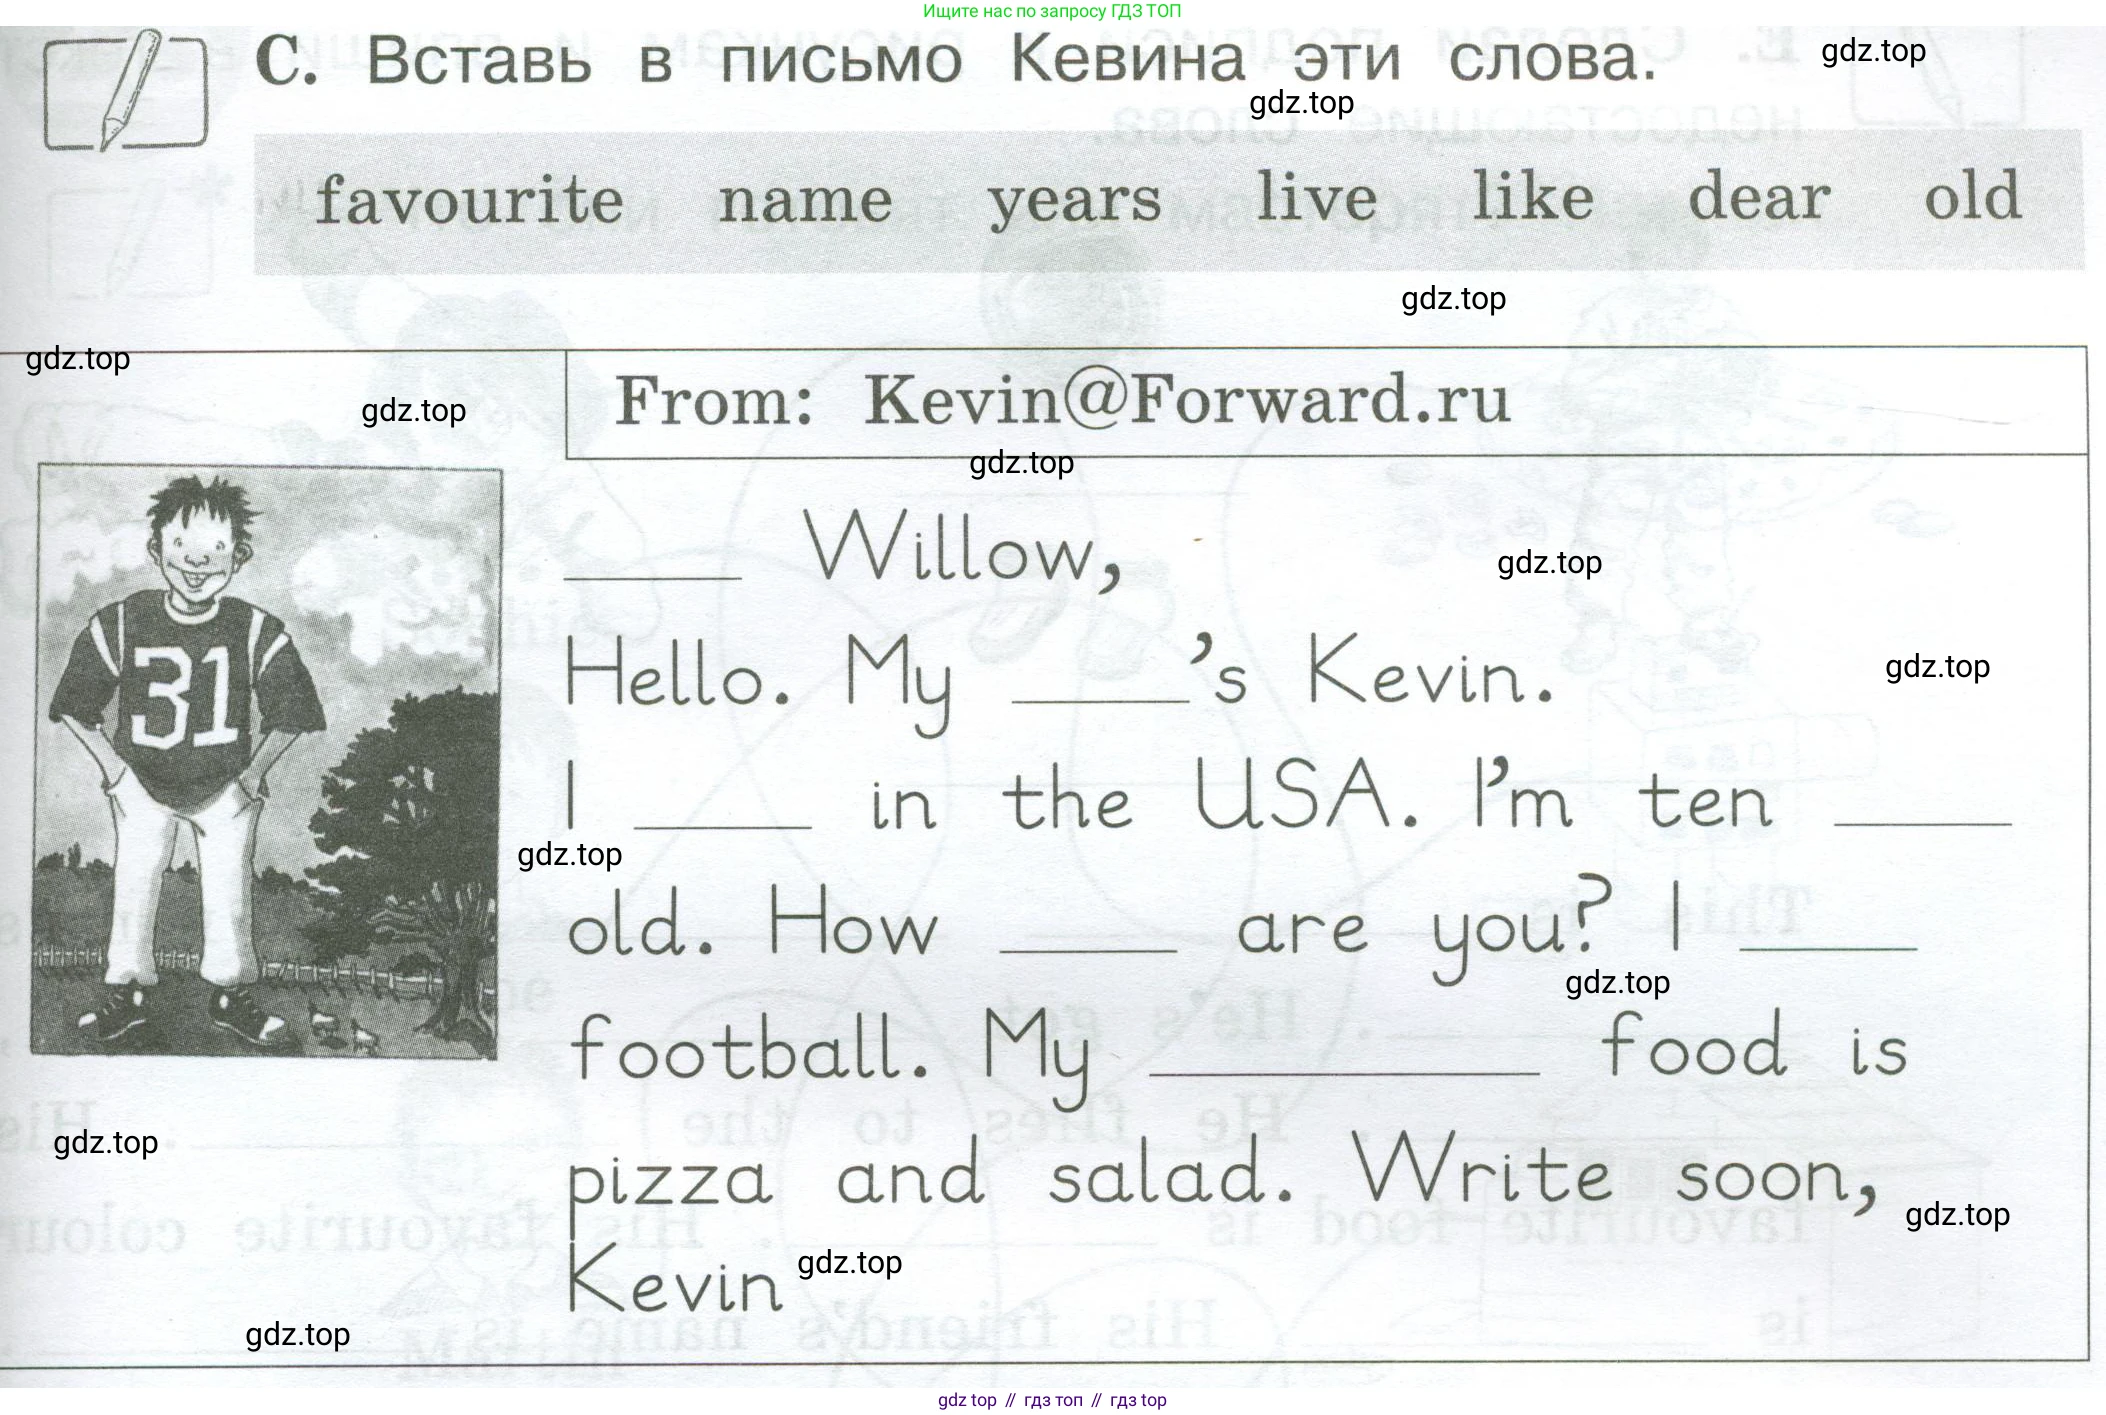 Ищите нас по запросу ГДЗ ТОП
C. Вставь в письмо Кевина эти слова.
gdz.top
gdz.top
favourite name years live like dear old
gdz.top
gdz.top
From: Kevin@Forward.ru
gdz.top
gdz.top
____ Willow,
gdz.top
Hello. My ____'s Kevin.
gdz.top
31
I ____ in the USA. I'm ten ____
gdz.top
old. How ____ are you? I ____
gdz.top
football. My ________ food is
gdz.top
pizza and salad. Write soon,
gdz.top
Kevin
gdz.top
gdz.top
gdz top // гдз топ // гдз top